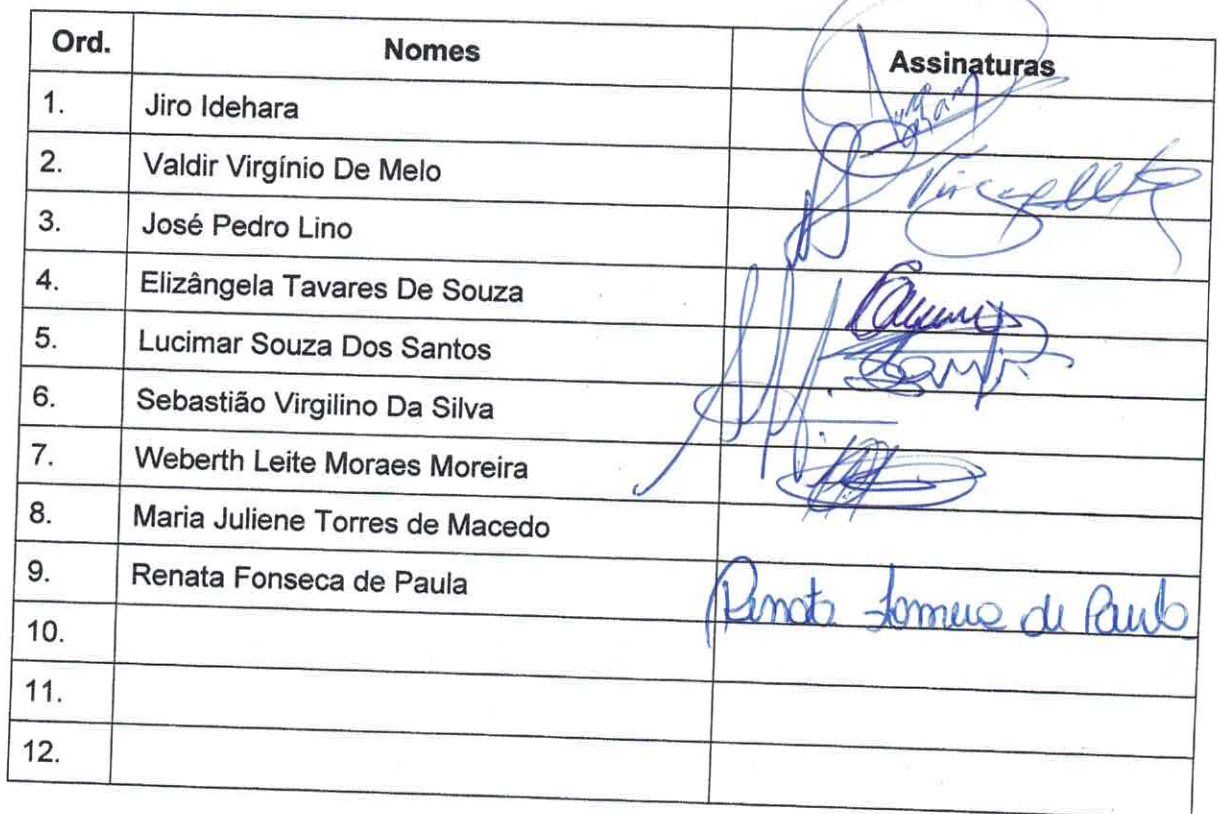 Ord. Nomes Assinaturas
1. Jiro Idehara
2. Valdir Virgínio De Melo
3. José Pedro Lino
4. Elizângela Tavares De Souza
5. Lucimar Souza Dos Santos
6. Sebastião Virgilino Da Silva
7. Weberth Leite Moraes Moreira
8. Maria Juliene Torres de Macedo
9. Renata Fonseca de Paula Renata Fonseca de Paula
10.
11.
12.